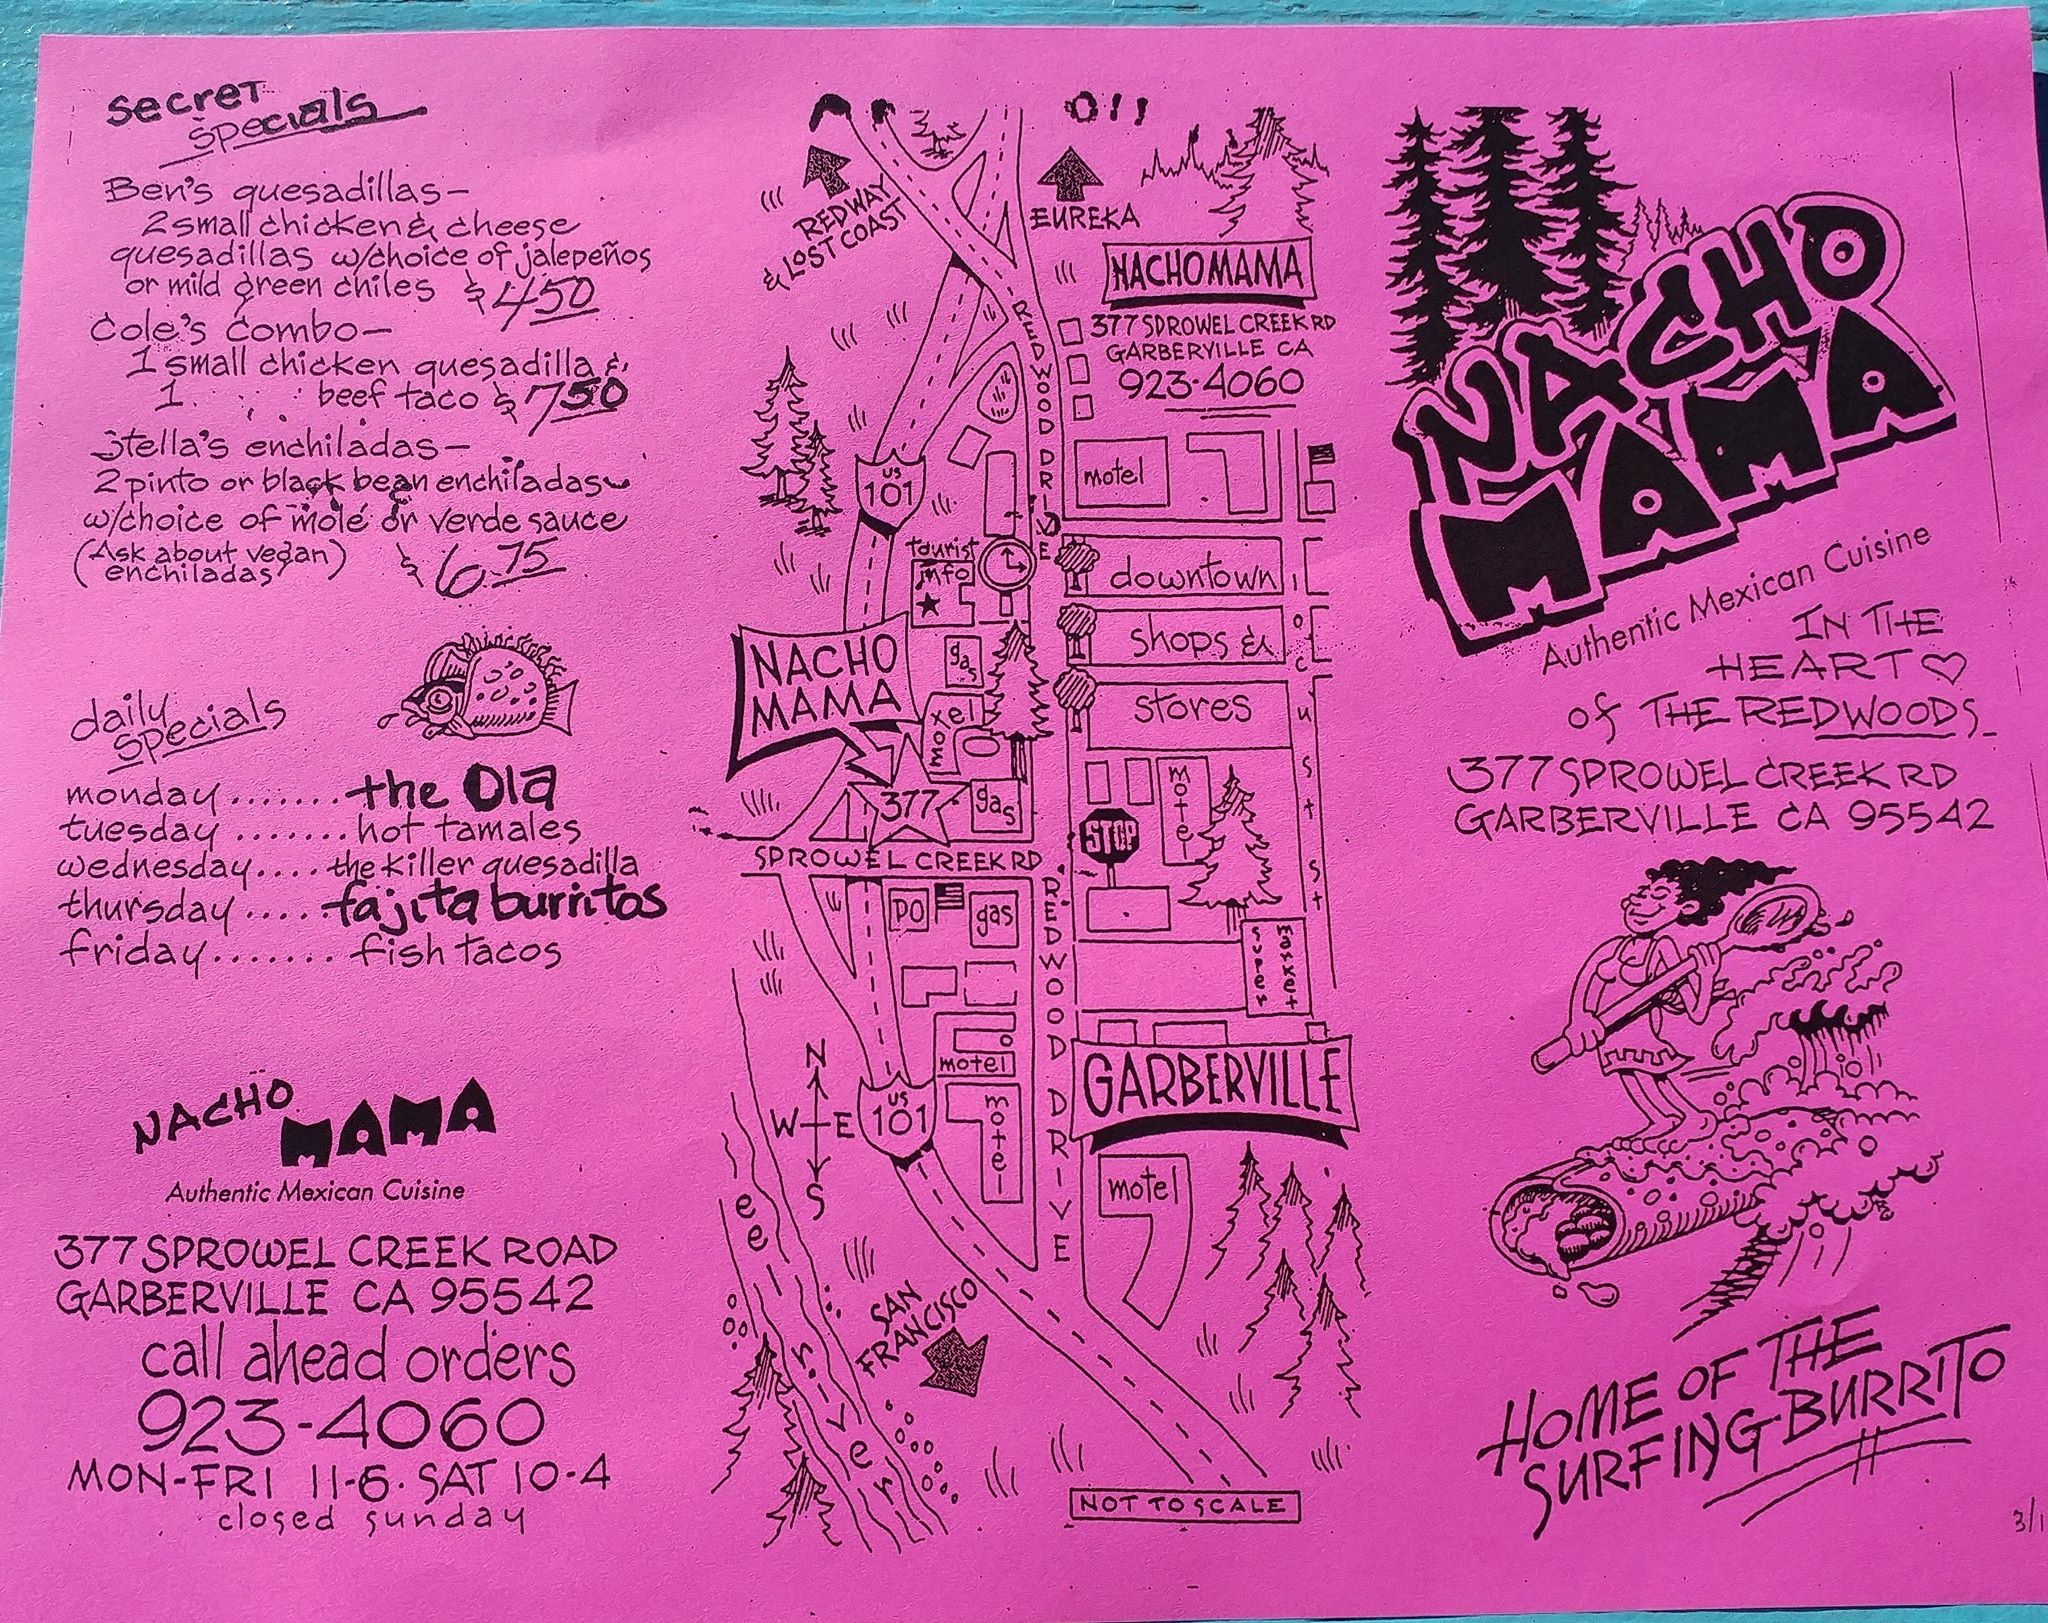 secret
specials
Ben's quesadillas—
2 small chicken & cheese
quesadillas w/choice of jalepeños
or mild green chiles $4.50
Cole's combo—
1 small chicken quesadilla &
1 beef taco $7.50
Stella's enchiladas—
2 pinto or black bean enchiladas
w/choice of molé or verde sauce
(Ask about vegan) $6.75
enchiladas
daily
specials
monday ....... the Ola
tuesday ....... hot tamales
wednesday.... the killer quesadilla
thursday ..... fajita burritos
friday ....... fish tacos
NACHO
MAMA
Authentic Mexican Cuisine
377 SPROWEL CREEK ROAD
GARBERVILLE CA 95542
call ahead orders
923-4060
MON-FRI 11-6. SAT 10-4
closed sunday
REDWAY
& LOST COAST
EUREKA
NACHOMAMA
377 SPROWEL CREEK RD
GARBERVILLE CA
923-4060
REDWOOD DRIVE
motel
US
101
tourist
info
downtown
shops &
stores
locust st
gas
NACHO
MAMA
motel
377
gas
motel
STOP
SPROWEL CREEK RD
PO
gas
REDWOOD DRIVE
super
market
motel
GARBERVILLE
N
W E
S
US
101
motel
motel
eel river
SAN
FRANCISCO
NOT TO SCALE
NACHO
MAMA
Authentic Mexican Cuisine
IN THE
HEART
of THE REDWOODS
377 SPROWEL CREEK RD
GARBERVILLE CA 95542
HOME OF THE
SURFING BURRITO